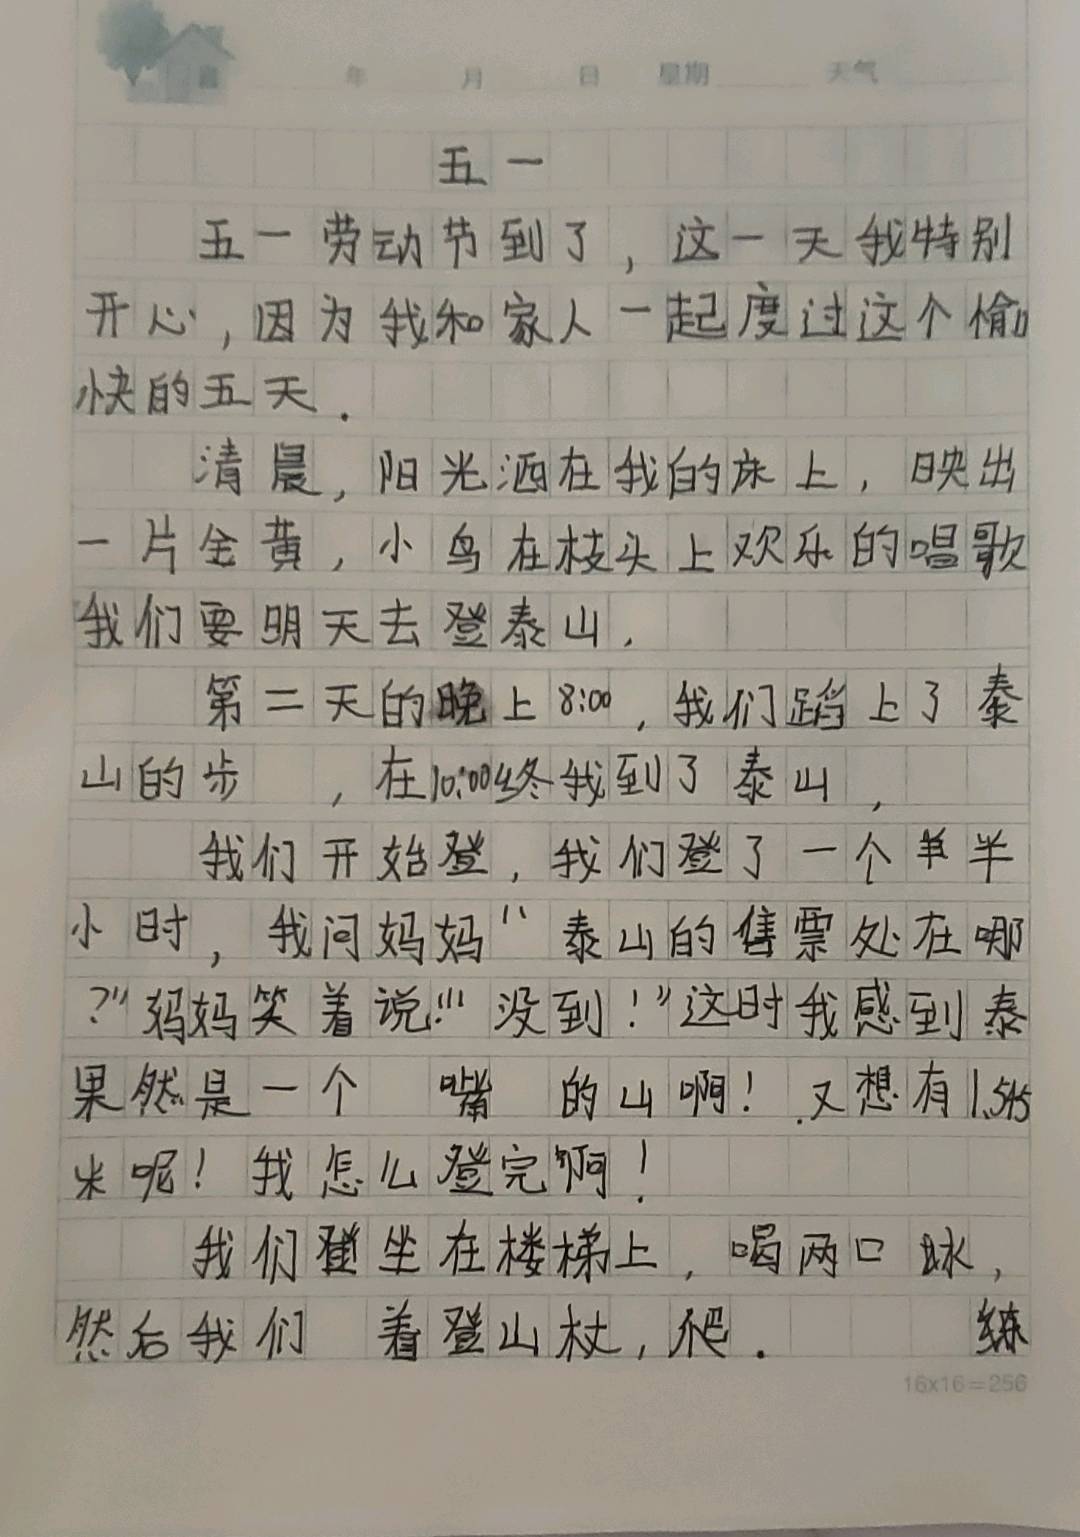 年 月 日 星期 天气
五一
五一劳动节到了，这一天我特别
开心，因为我和家人一起度过这个愉
快的五天.
清晨，阳光洒在我的床上，映出
一片金黄，小鸟在枝头上欢乐的唱歌
我们要明天去登泰山.
第二天的晚上8:00，我们蹈上了泰
山的步 ，在10:00终我到了泰山，
我们开始登，我们登了一个半
小时，我问妈妈“泰山的售票处在哪
?”妈妈笑着说:“没到!”这时我感到泰
果然是一个 嘴 的山啊! 又想有1.545
米呢! 我怎么登完啊!
我们坐在楼梯上，喝两口水，
然后我们 着登山杖，爬. 练
16x16=256